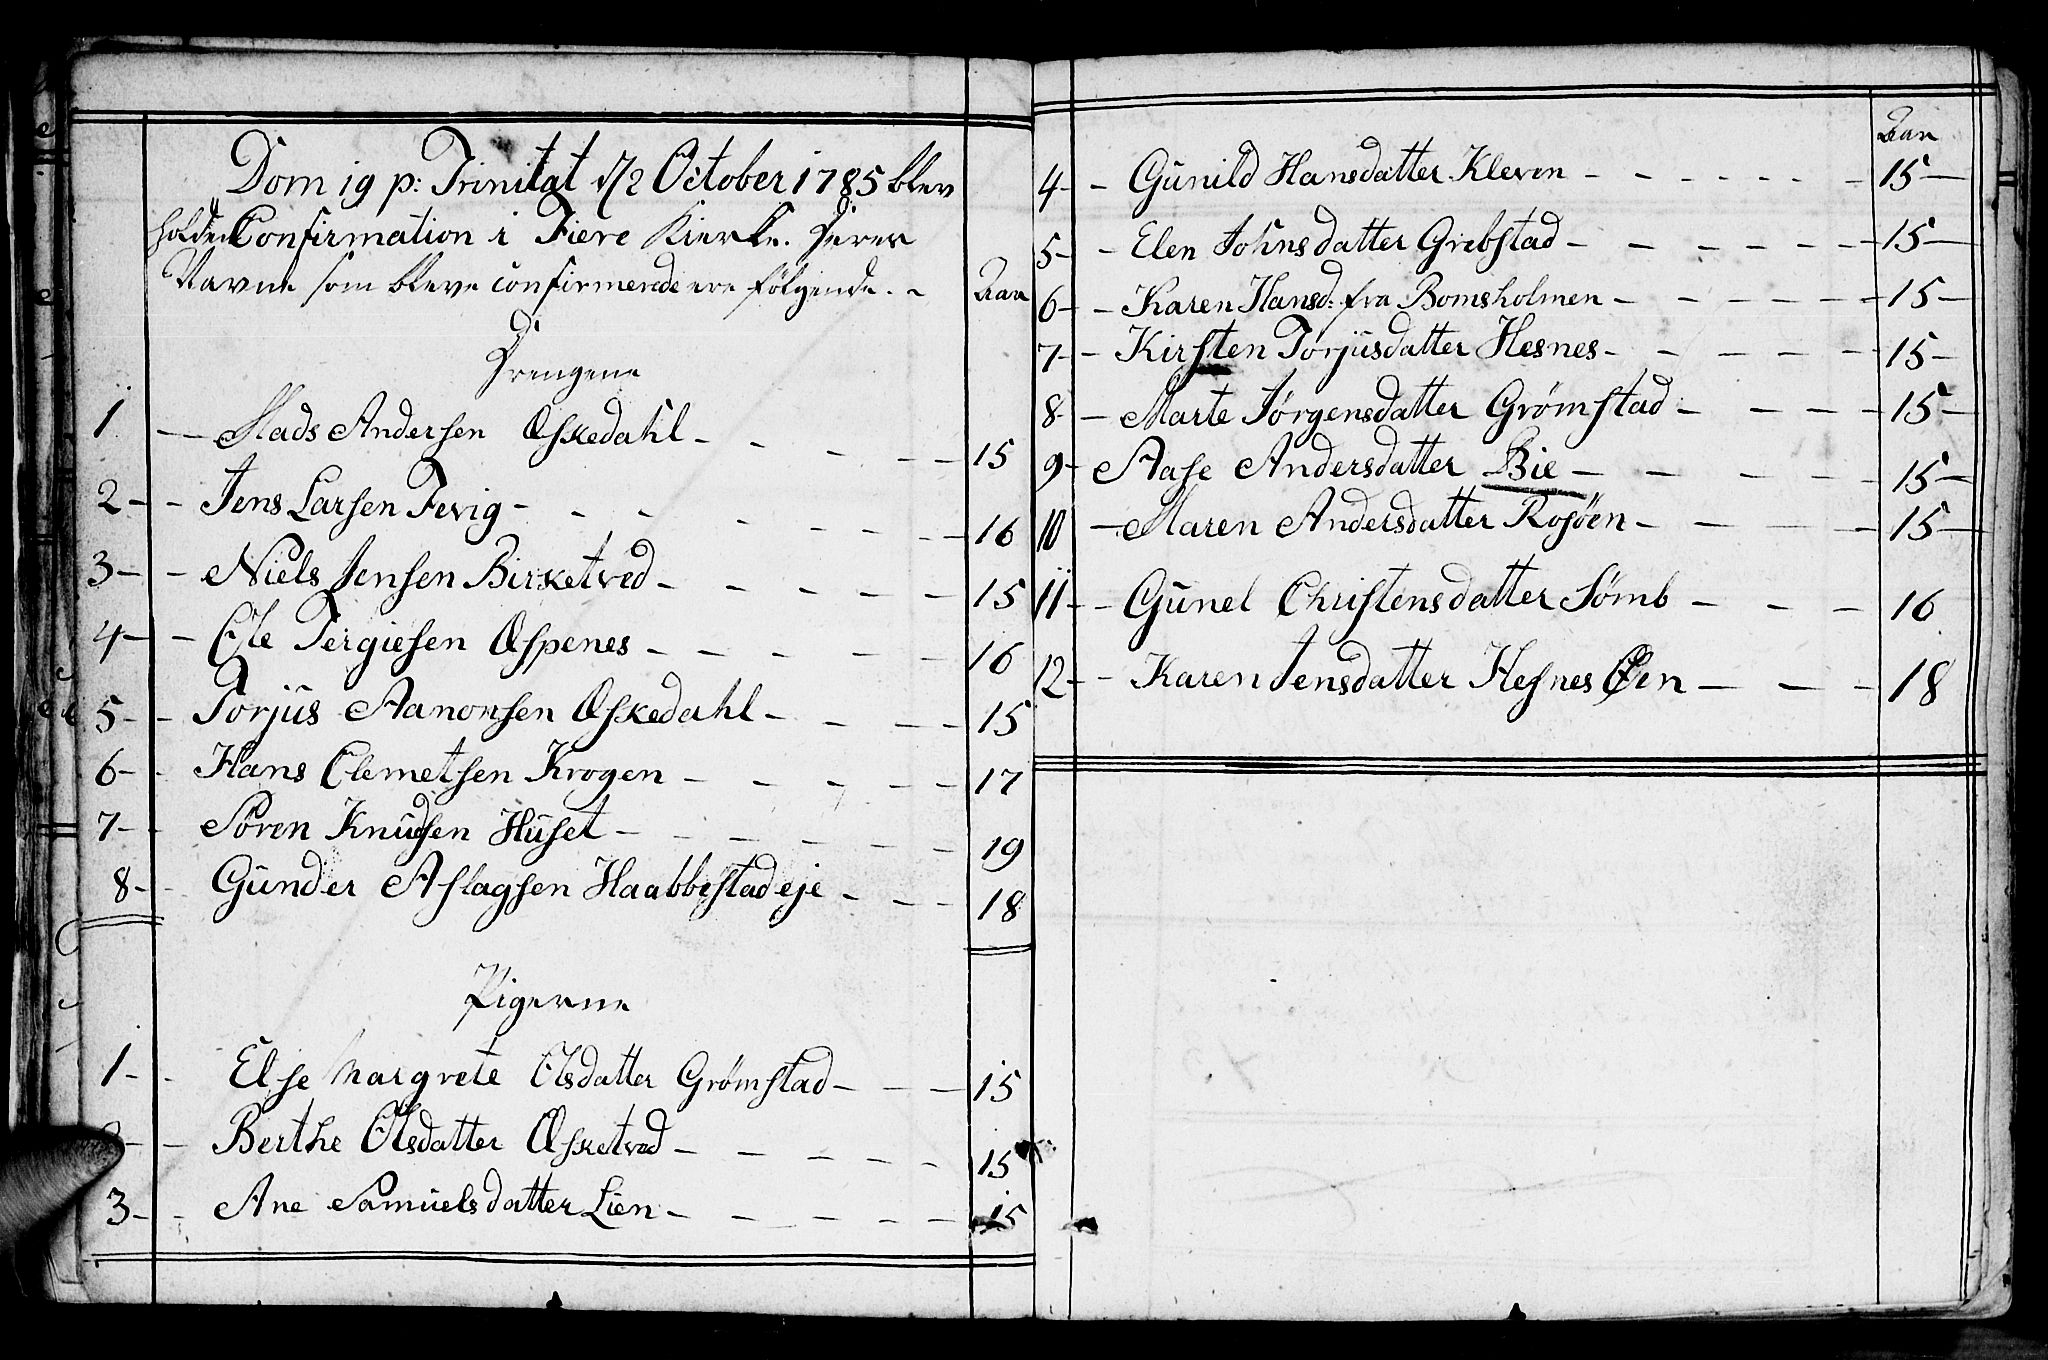 Dom 19 p: Trinitat d/2 October 1785 blev
holden Confirmation i Fiere Kierke. Deres
Navne som bleve confirmerede ere følgende. -
Aar
Drengene
1 - Mads Andersen Øskedahl - 15
2 - Jens Larsen Fevig - 16
3 - Niels Jensen Birketved - 15
4 - Ole Tergiesen Øspenes - 16
5 - Torjus Aanonsen Øskedahl - 15
6 - Hans Clemetsen Krogen - 17
7 - Søren Knudsen Huset - 19
8 - Gunder Aslagsen Haabbestad eje - 18
Pigerne
1 - Else Margrete Olsdatter Grømstad - 15
2 - Berthe Olsdatter Øsketved - 15
3 - Ane Samuelsdatter Lien - 15
Aar
4 - Gunild Hansdatter Kleven - 15
5 - Elen Johnsdatter Grebstad - 15
6 - Karen Hansd: fra Bomsholmen - 15
7 - Kirsten Torjusdatter Hesnes - 15
8 - Marte Jørgensdatter Grømstad - 15
9 - Aase Andersdatter Bie - 15
10 - Maren Andersdatter Rosøen - 15
11 - Gunel Christensdatter Sømb - 16
12 - Karen Jensdatter Hesnes Øen - 18